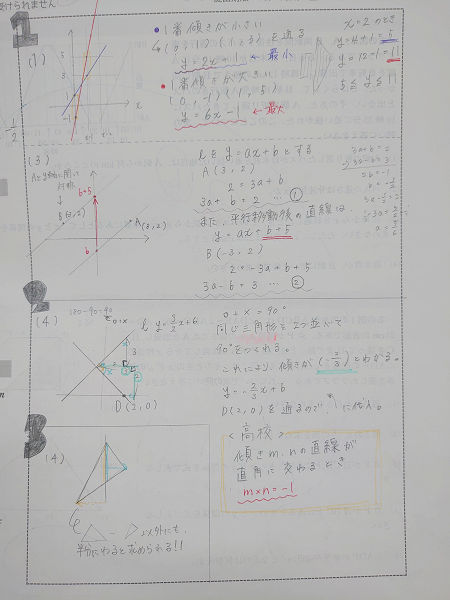 1
(1)
・1番傾きが小さい
(0, 1) (1, 3) を通る
y = 2x + 1 ← 最小
・1番傾きが大きい
(0, -1) (1, 5)
y = 6x - 1 ← 最大
x = 2 のとき
y = 4 + 1 = 5
y = 12 - 1 = 11
5 ≦ y ≦ 11
2
(3)
Aとy軸に関して
対称
B(-3, 2)
A(3, 2)
b+5
b
ℓを y = ax + b とする
A (3, 2)
2 = 3a + b
3a + b = 2 … ①
また、平行移動後の直線は、
y = ax + b + 5
B (-3, 2)
2 = -3a + b + 5
3a - b = 3 … ②
3a + b = 2
3a - b = 3
2b = -1
(4)
ℓ y = 3/2 x + 6
D(2, 0)
○ + × = 90°
同じ三角形を2つ並べて
90°をつくれる。
これにより、傾きが (-2/3) とわかる。
y = -2/3 x + b
D(2, 0) を通るので
に代入。
3
(4)
以外にも、
半分にわると求められる!!
<高校>
傾きm, nの直線が
直角に交わるとき
m×n = -1